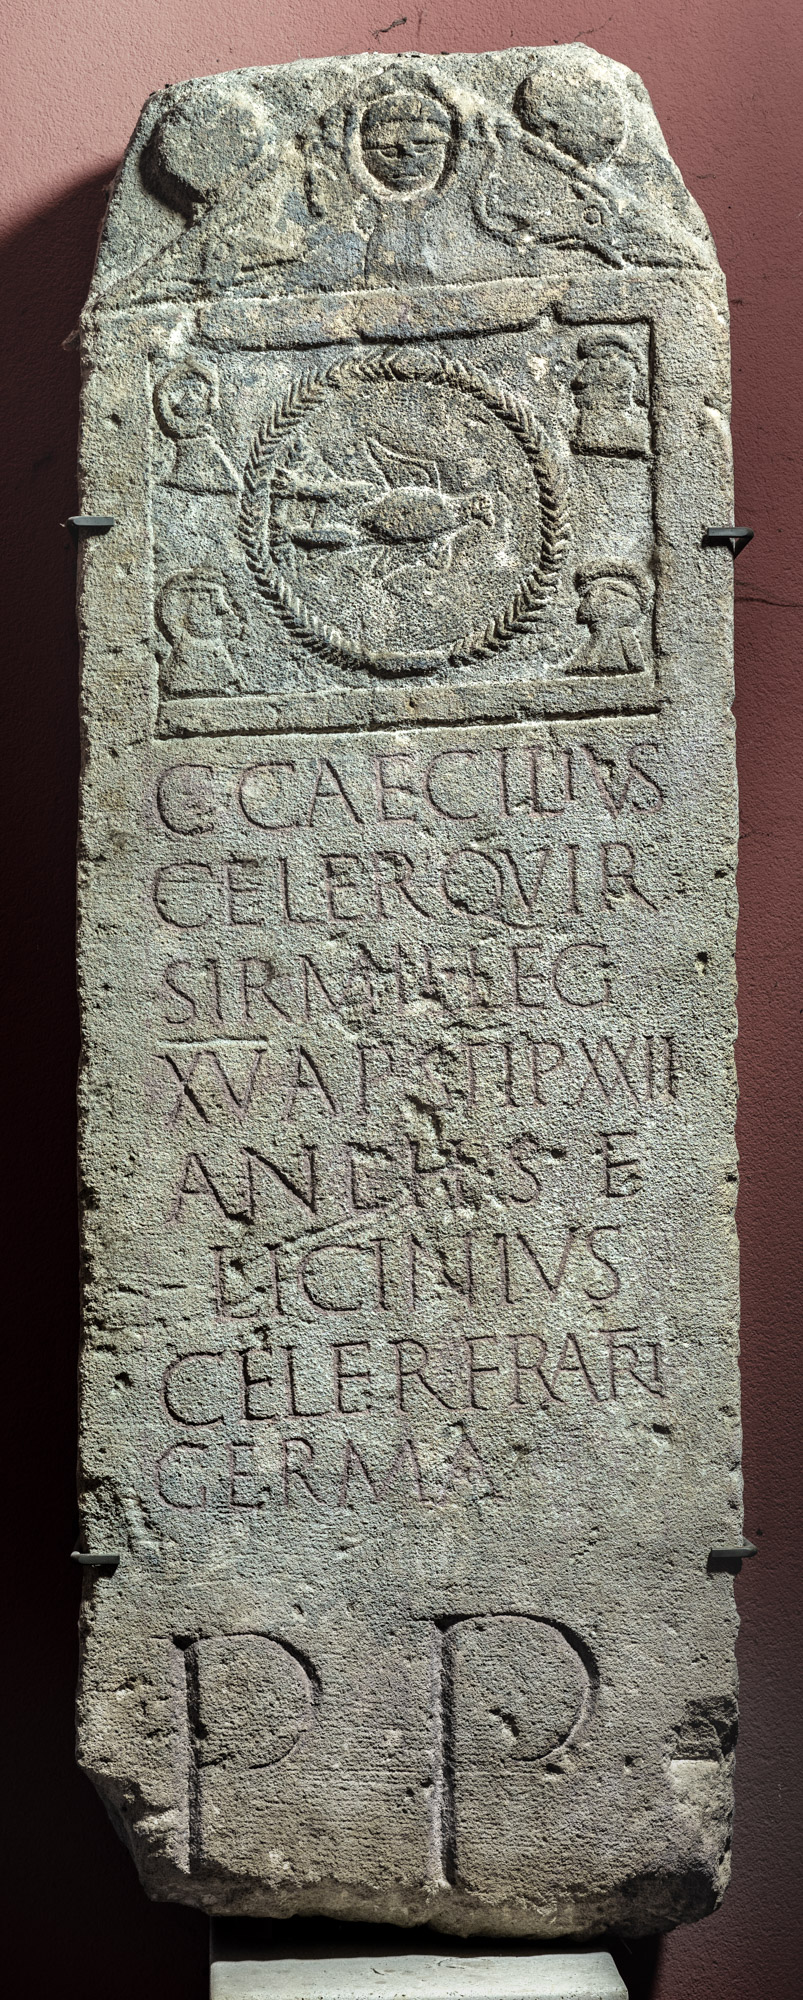 C CAECILIVS
CELER QVIR
SIRMI LEG
XV AP STIP XVII
AN EH S E
LICINIVS
CELER FRATRI
GERMA
P P